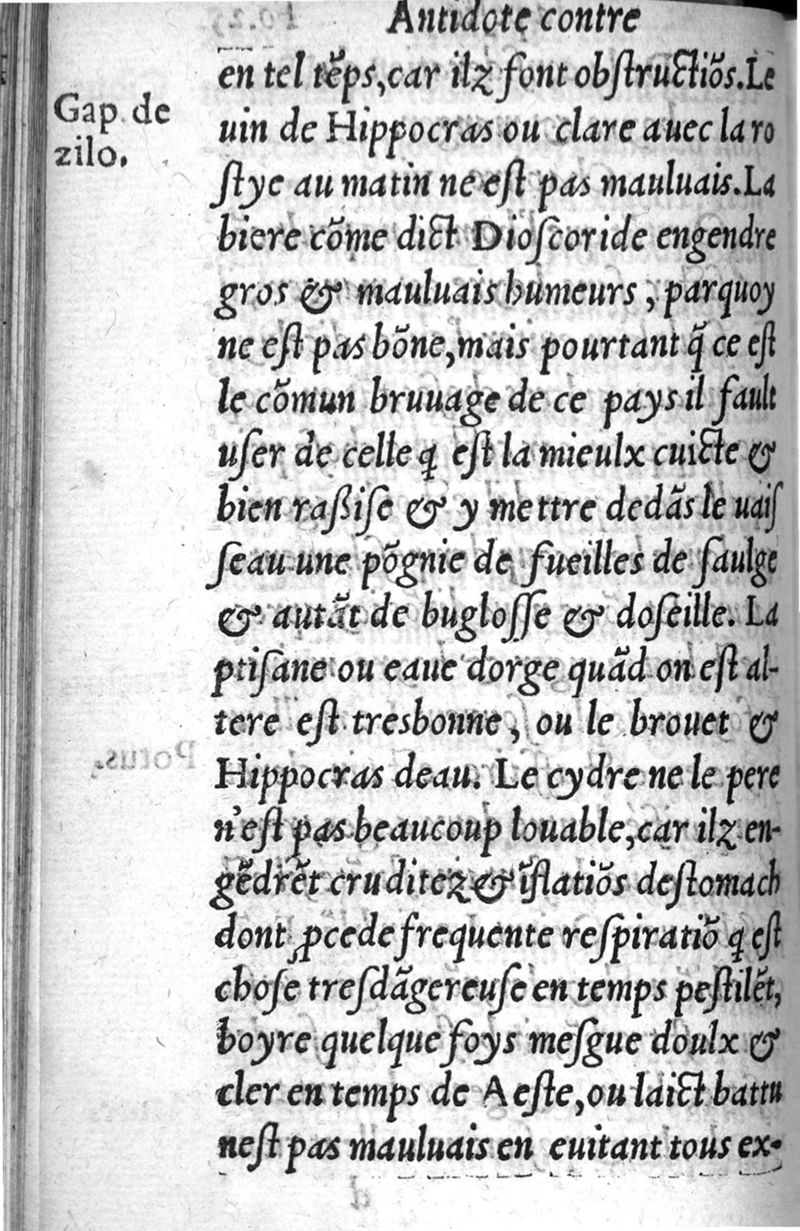 Antidote contre
en tel tẽps,car ilz ſont obſtructiõs.Le
Gap. de
zilo.
uin de Hippocras ou clare auec la ro
ſtye au matin ne eſt pas mauluais.La
biere cõme dict Dioſcoride engendre
gros & mauluais humeurs , parquoy
ne eſt pas bõne,mais pourtant q̃ ce eſt
le cõmun bruuage de ce pays il fault
uſer de celle ꝗ eſt la mieulx cuicte &
bien raßiſe & y mettre dedãs le uaiſ
ſeau une põgnie de fueilles de ſaulge
& autãt de bugloſſe & doſeille. La
ptiſane ou eaue dorge quãd on eſt al-
tere eſt tresbonne , ou le brouet &
Hippocras deau. Le cydre ne le pere
n'eſt pas beaucoup louable,car ilz en-
gẽdrẽt cruditez & ĩflatiõs deſtomach
dont ꝓcede frequente reſpiratiõ ꝗ eſt
choſe treſdãgereuſe en temps peſtilẽt,
boyre quelque foys meſgue doulx &
cler en temps de Aeſte,ou laict battu
neſt pas mauluais en euitant tous ex-